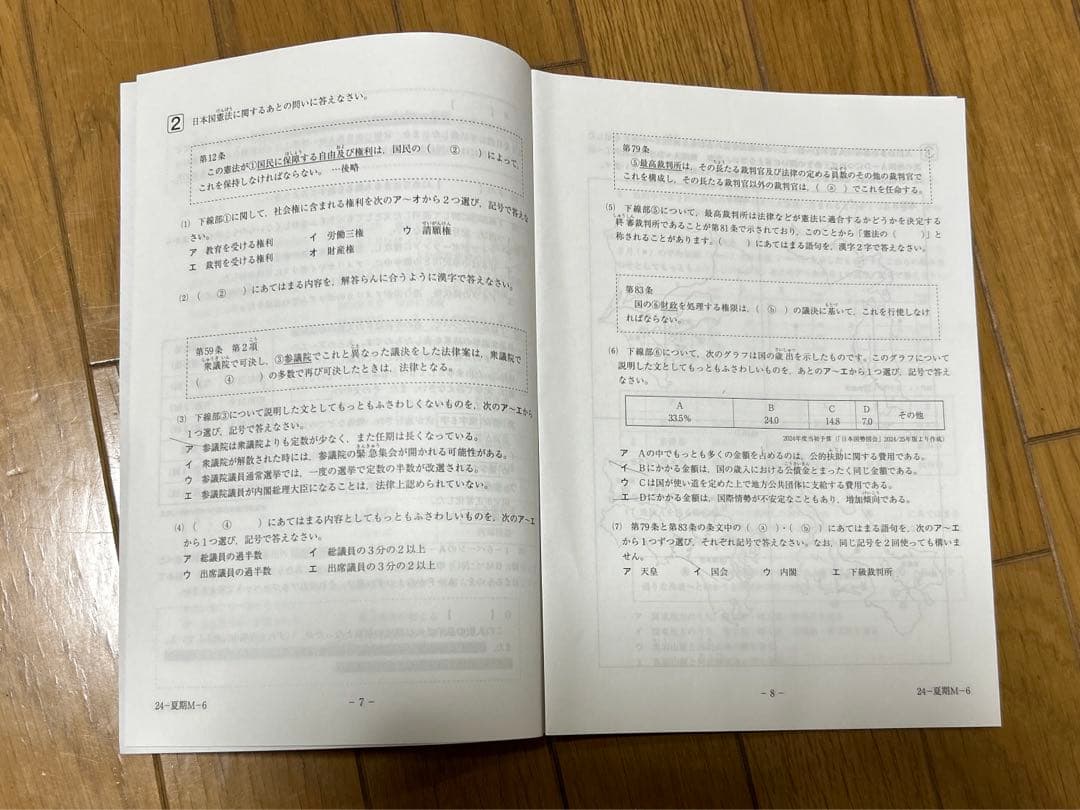 2 日本国憲法に関するあとの問いに答えなさい。
第12条
この憲法が①国民に保障する自由及び権利は、国民の（　②　）によって、
これを保持しなければならない。…後略
(1) 下線部①に関して、社会権に含まれる権利を次のア～オから2つ選び、記号で答えな
さい。
ア 教育を受ける権利　イ 労働三権　ウ 請願権
エ 裁判を受ける権利　オ 財産権
(2) （　②　）にあてはまる内容を、解答らんに合うように漢字で答えなさい。
第59条　第2項
衆議院で可決し、③参議院でこれと異なった議決をした法律案は、衆議院で
（　④　）の多数で再び可決したときは、法律となる。
(3) 下線部③について説明した文としてもっともふさわしくないものを、次のア～エから
1つ選び、記号で答えなさい。
ア 参議院は衆議院よりも定数が少なく、また任期は長くなっている。
イ 衆議院が解散された時には、参議院の緊急集会が開かれる可能性がある。
ウ 参議院議員通常選挙では、一度の選挙で定数の半数が改選される。
エ 参議院議員が内閣総理大臣になることは、法律上認められていない。
(4) （　④　）にあてはまる内容としてもっともふさわしいものを、次のア～エ
から1つ選び、記号で答えなさい。
ア 総議員の過半数　イ 総議員の3分の2以上
ウ 出席議員の過半数　エ 出席議員の3分の2以上
24－夏期M－6
－7－
第79条
⑤最高裁判所は、その長たる裁判官及び法律の定める員数のその他の裁判官で
これを構成し、その長たる裁判官以外の裁判官は、（ⓐ）でこれを任命する。
(5) 下線部⑤について、最高裁判所は法律などが憲法に適合するかどうかを決定する
終審裁判所であることが第81条で示されており、このことから「憲法の（　　）」と
称されることがあります。（　　）にあてはまる語句を、漢字2字で答えなさい。
第83条
国の⑥財政を処理する権限は、（ⓑ）の議決に基いて、これを行使しなけ
ればならない。
(6) 下線部⑥について、次のグラフは国の歳出を示したものです。このグラフについて
説明した文としてもっともふさわしいものを、あとのア～エから1つ選び、記号で答え
なさい。
A　B　C　D　その他
33.5%　24.0　14.8　7.0
2024年度当初予算（「日本国勢図会」2024/25年版より作成）
ア Aの中でもっとも多くの金額を占めるのは、公的扶助に関する費用である。
イ Bにかかる金額は、国の歳入における公債金とまったく同じ金額である。
ウ Cは国が使い道を定めた上で地方公共団体に支給する費用である。
エ Dにかかる金額は、国際情勢が不安定なこともあり、増加傾向である。
(7) 第79条と第83条の条文中の（ⓐ）・（ⓑ）にあてはまる語句を、次のア～エ
から1つずつ選び、それぞれ記号で答えなさい。なお、同じ記号を2回使っても構いま
せん。
ア 天皇　イ 国会　ウ 内閣　エ 下級裁判所
－8－
24－夏期M－6